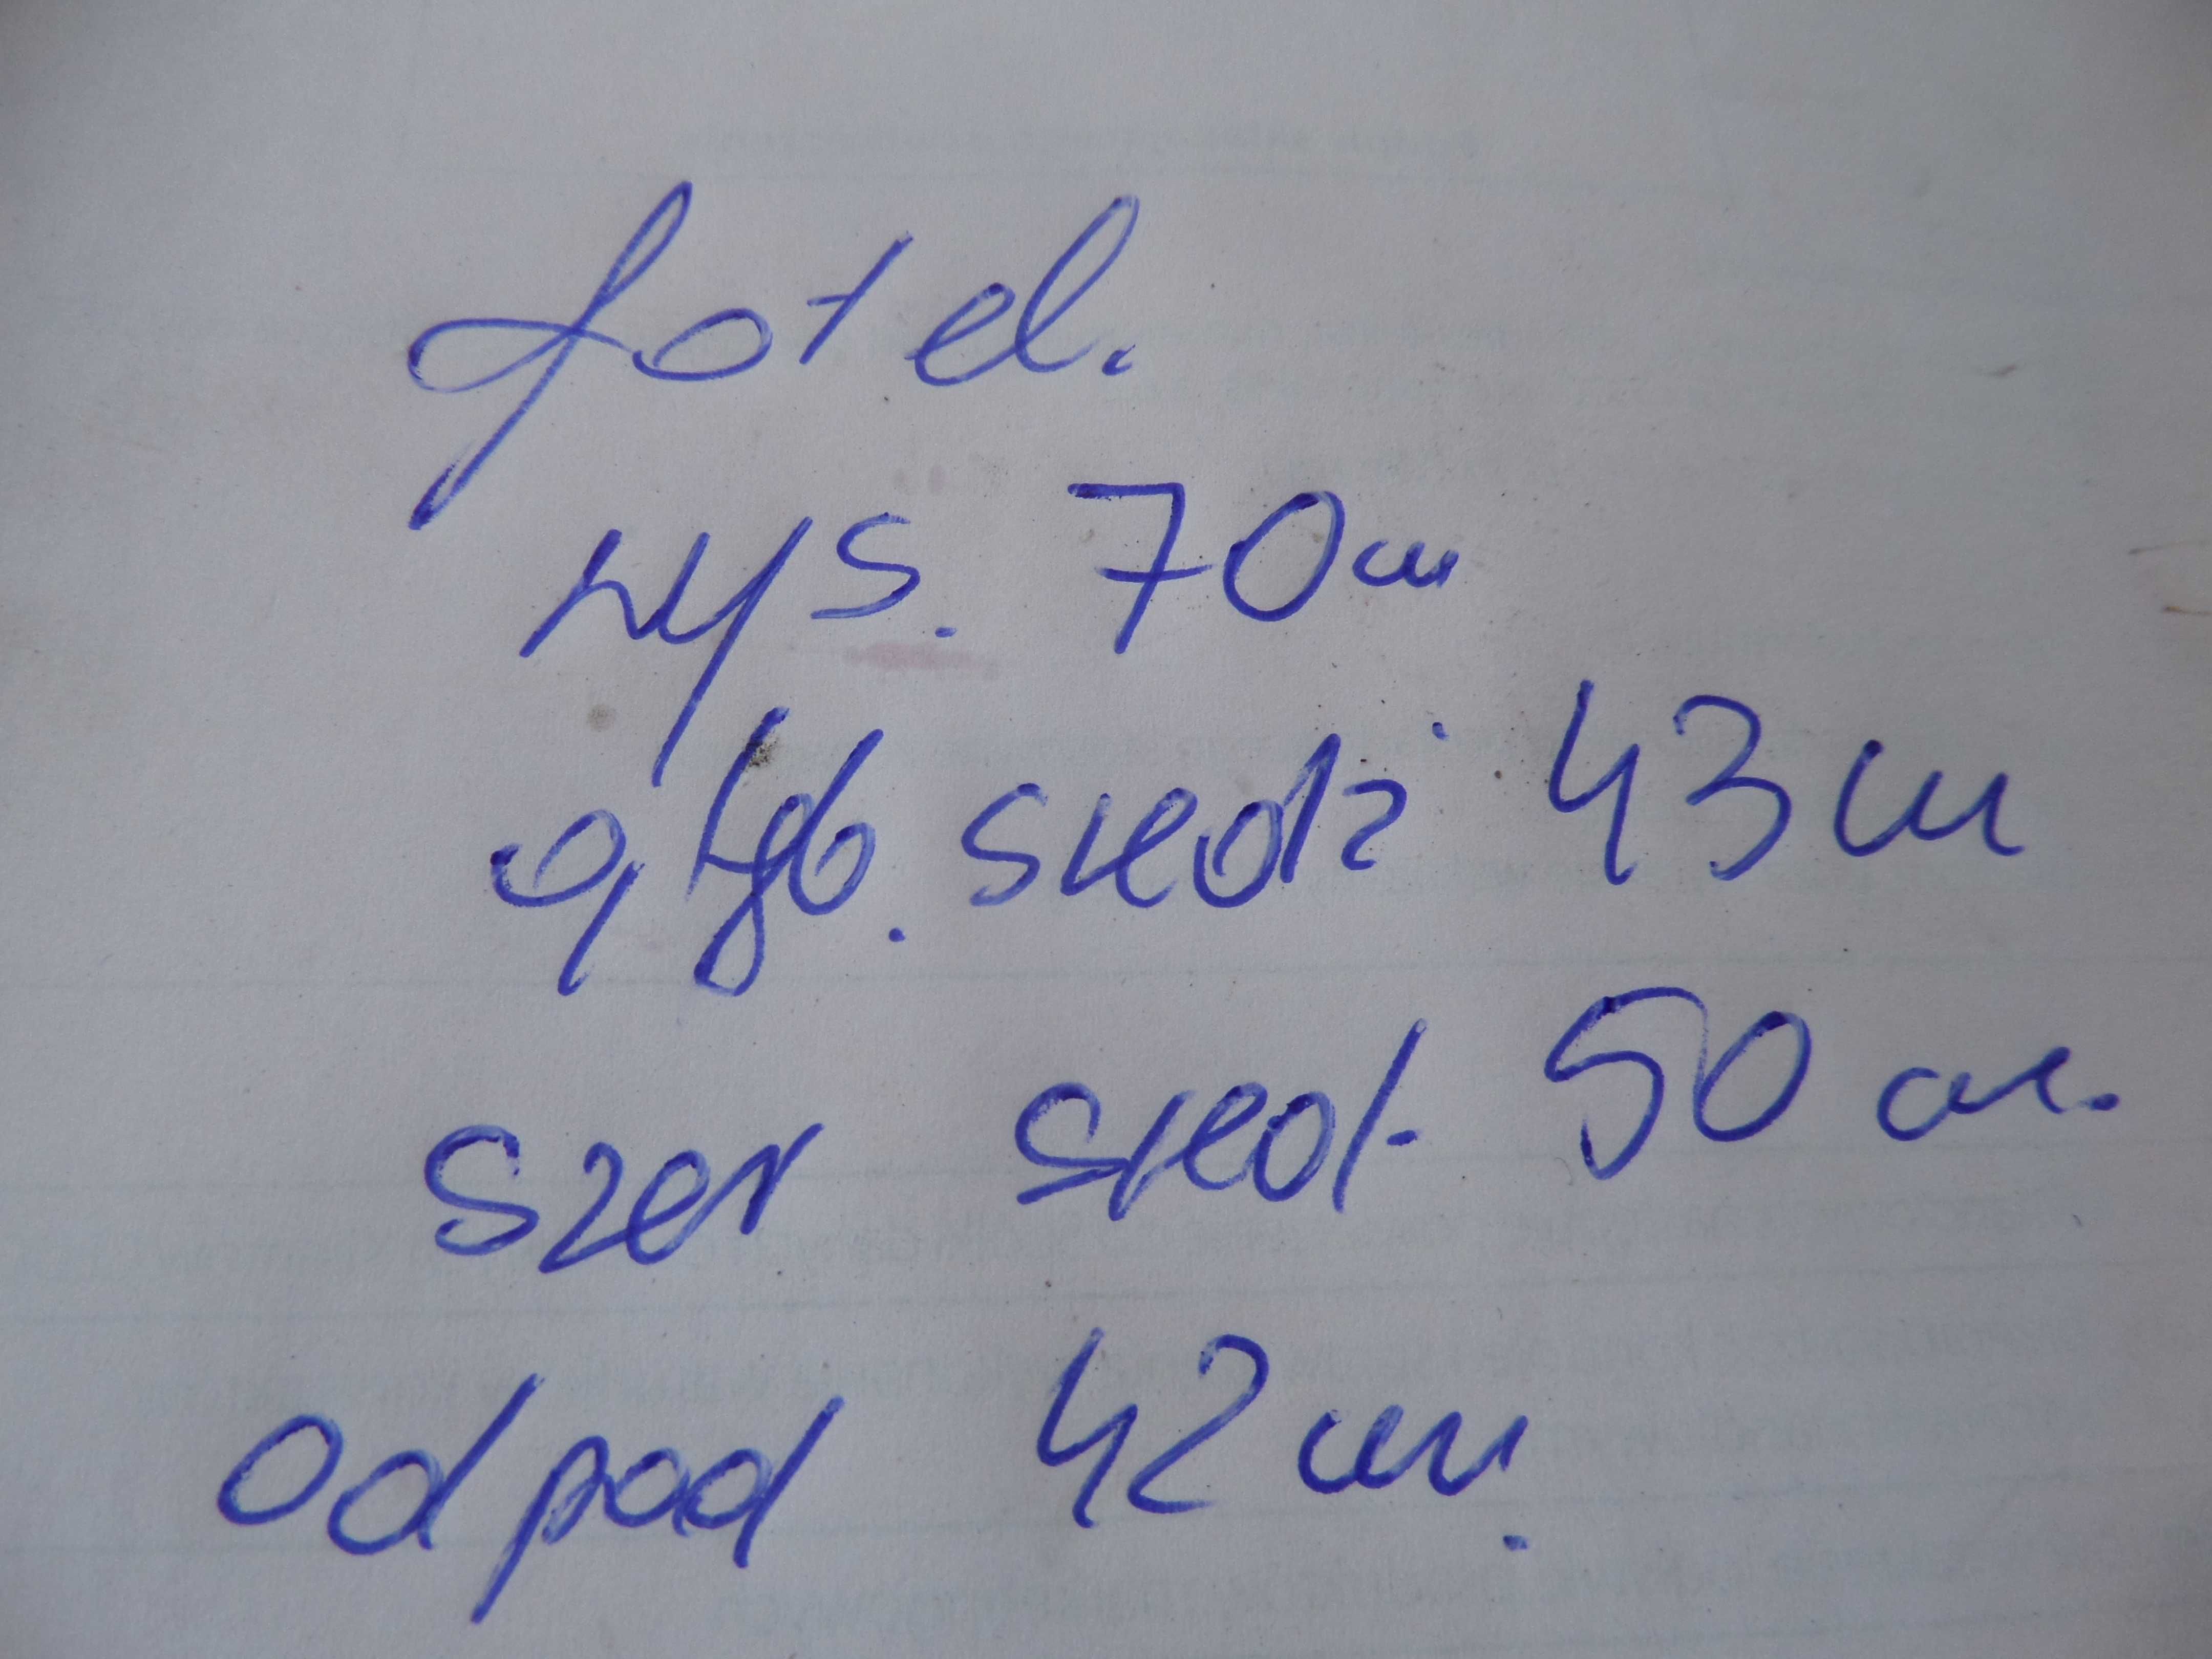 fotel.
wys. 70 cm
głęb. siedz. 43 cm
szer sied. 50 cm.
od pod 42 cm.